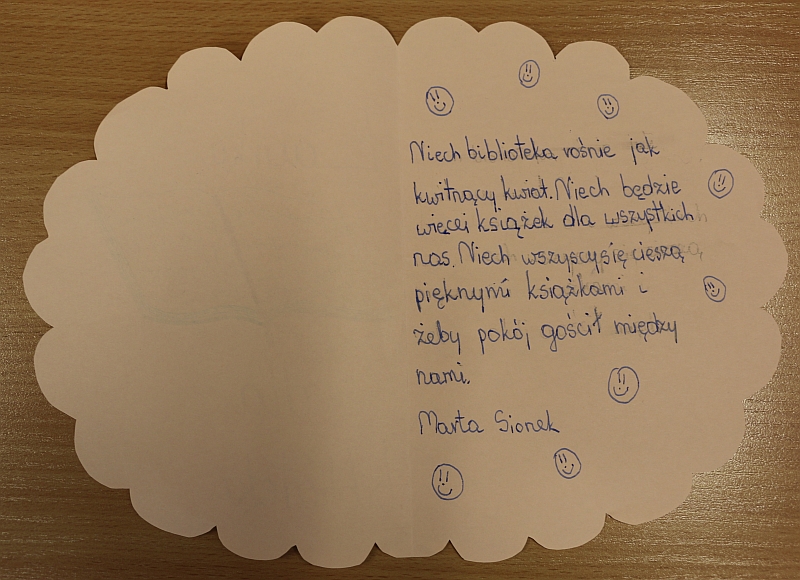 Niech biblioteka rośnie jak
kwitnący kwiat. Niech będzie
więcej książek dla wszystkich
nas. Niech wszyscy się cieszą
pięknymi książkami i
żeby pokój gościł między
nami.
Marta Sionek